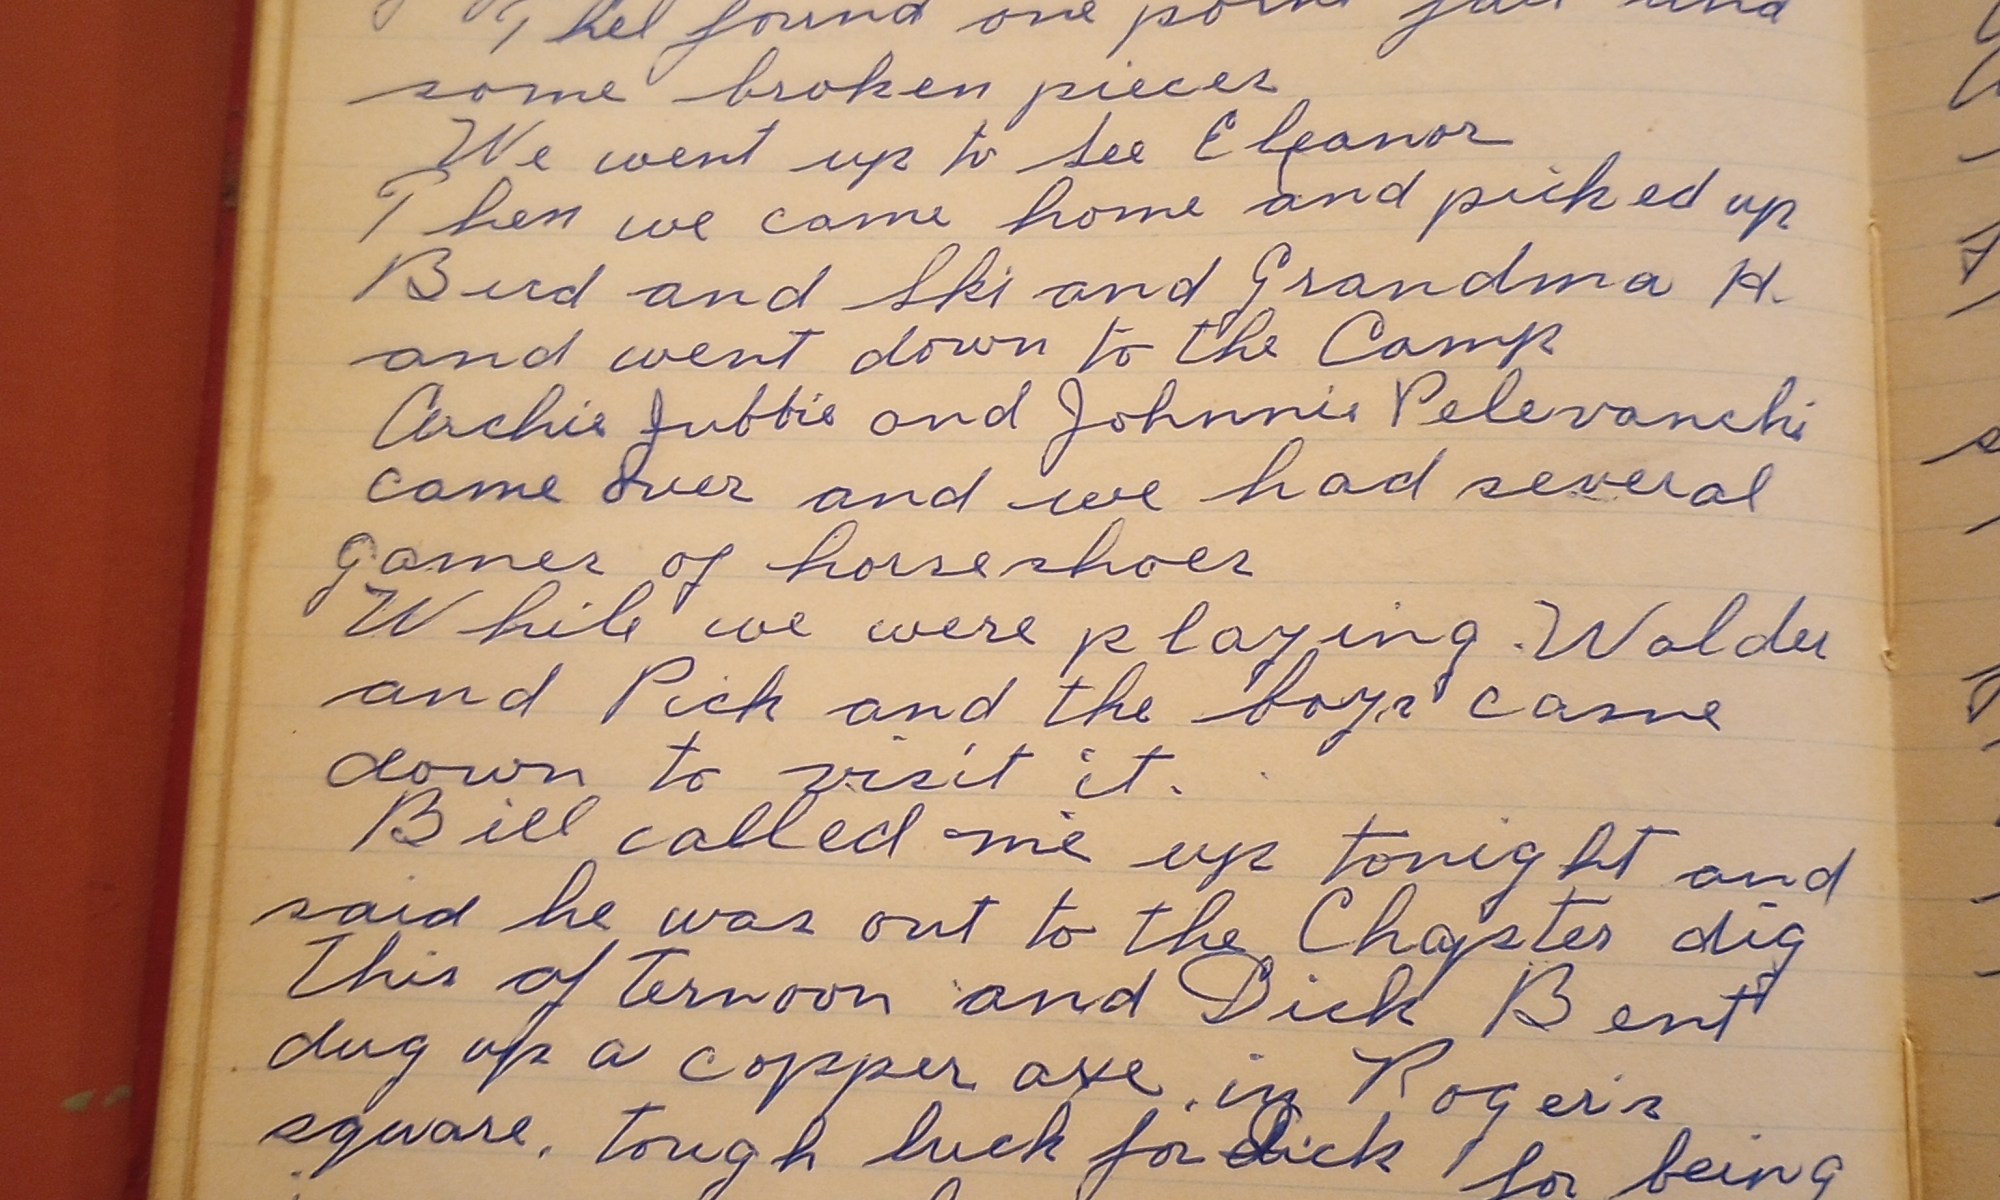 Thel found one point and
some broken pieces
We went up to see Eleanor
Then we came home and picked up
Bird and Ski and Grandma H.
and went down to the Camp
Archie Jubbie and Johnnie Pelevanchi
came over and we had several
games of horseshoes
While we were playing. Walder
and Pick and the boys came
down to visit it.
Bill called me up tonight and
said he was out to the Chapter dig
This afternoon and Dick Bent
dug up a copper axe in Roger's
square. tough luck for Dick for being